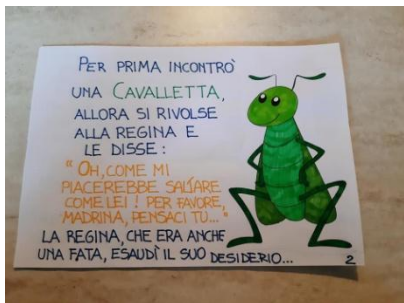 PER PRIMA INCONTRÒ
UNA CAVALLETTA,
ALLORA SI RIVOLSE
ALLA REGINA E
LE DISSE:
"OH, COME MI
PIACEREBBE SALTARE
COME LEI! PER FAVORE,
MADRINA, PENSACI TU..."
LA REGINA, CHE ERA ANCHE
UNA FATA, ESAUDÌ IL SUO DESIDERIO...
2